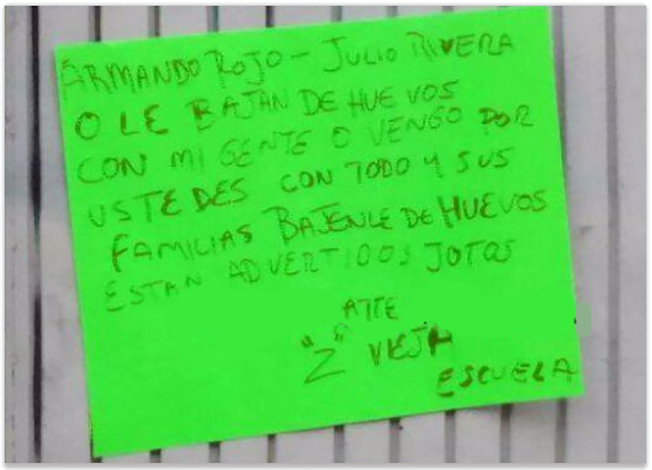 ARMANDO ROJO - JULIO RIVERA
O LE BAJAN DE HUEVOS
CON MI GENTE O VENGO POR
USTEDES CON TODO Y SUS
FAMILIAS BAJENLE DE HUEVOS
ESTAN ADVERTIDOS JOTOS
ATTE
"Z" VIEJA
ESCUELA